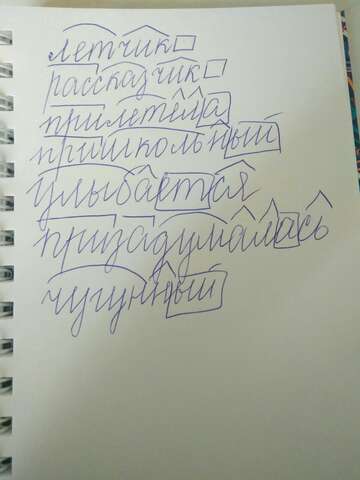 летчик
рассказчик
прилетела
пришкольный
улыбается
призадумалась
чугунный